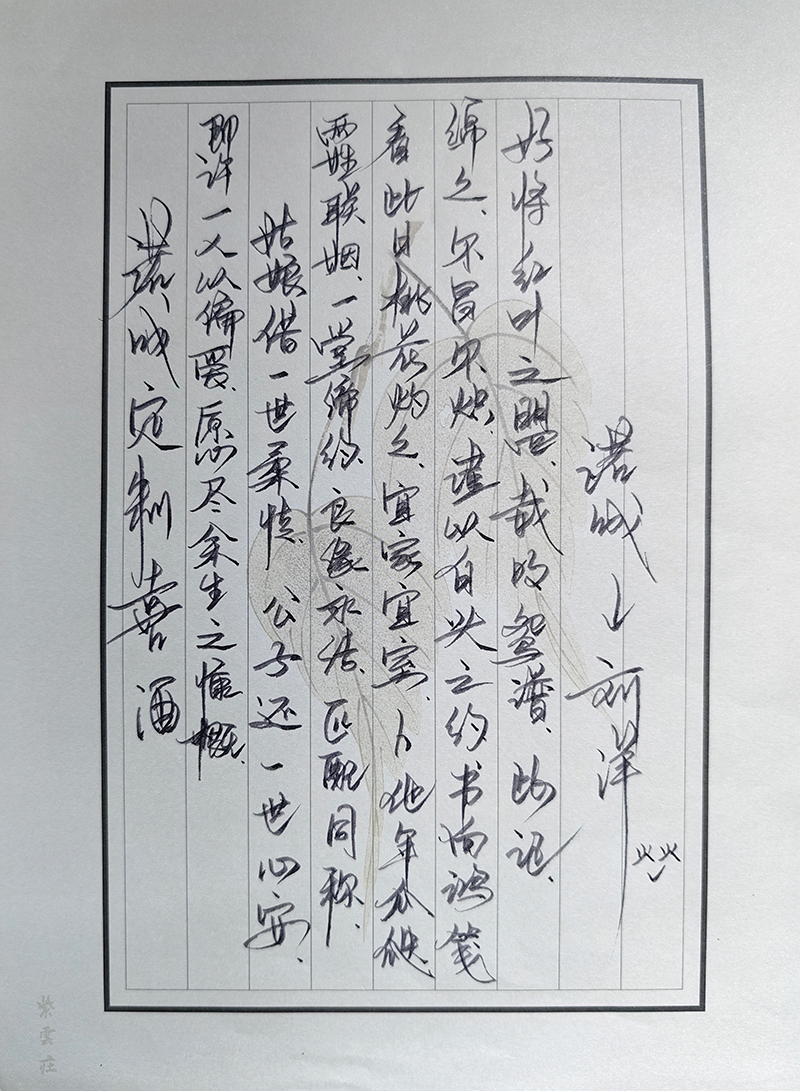 诺成定制喜酒
即许一人以偏爱、愿尽余生之慷慨、
姑娘借一世柔情、公子还一世心安、
两姓联姻、一堂缔约、良缘永结、匹配同称、
看此日桃花灼々、宜家宜室、卜他年瓜瓞
绵々、尔昌尔炽、谨以白头之约书向鸿笺
好将红叶之盟、载明鸳谱、此证、
诺成 刘洋
紫雲莊